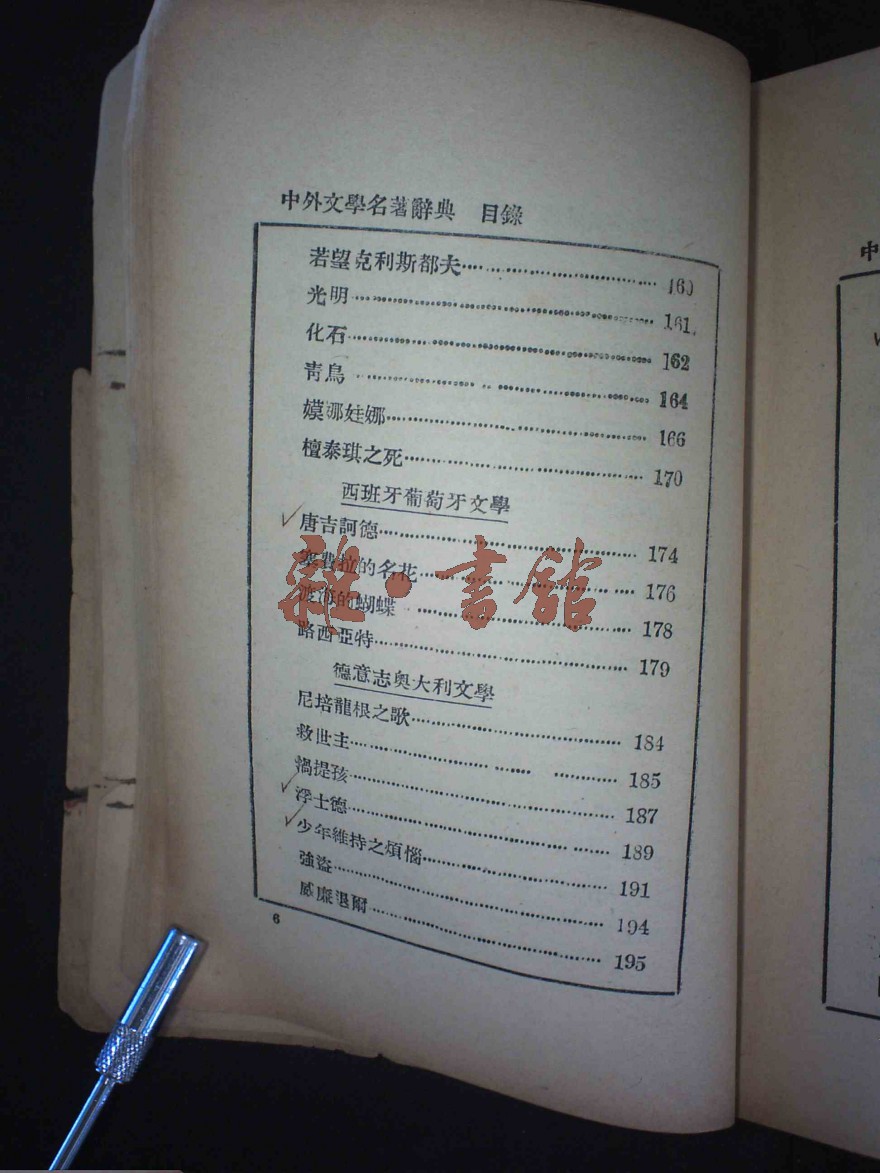 中外文學名著辭典 目錄
若望克利斯都夫 160
光明 161
化石 162
青鳥 164
嫫娜娃娜 166
檀泰琪之死 170
西班牙葡萄牙文學
唐吉訶德 174
塞費拉的名花 176
渡海的蝴蝶 178
路西亞特 179
德意志奧大利文學
尼培龍根之歌 184
救世主 185
渦提孩 187
浮士德 189
少年維持之煩惱 191
強盜 194
威廉退爾 195
6
雜·書館
中